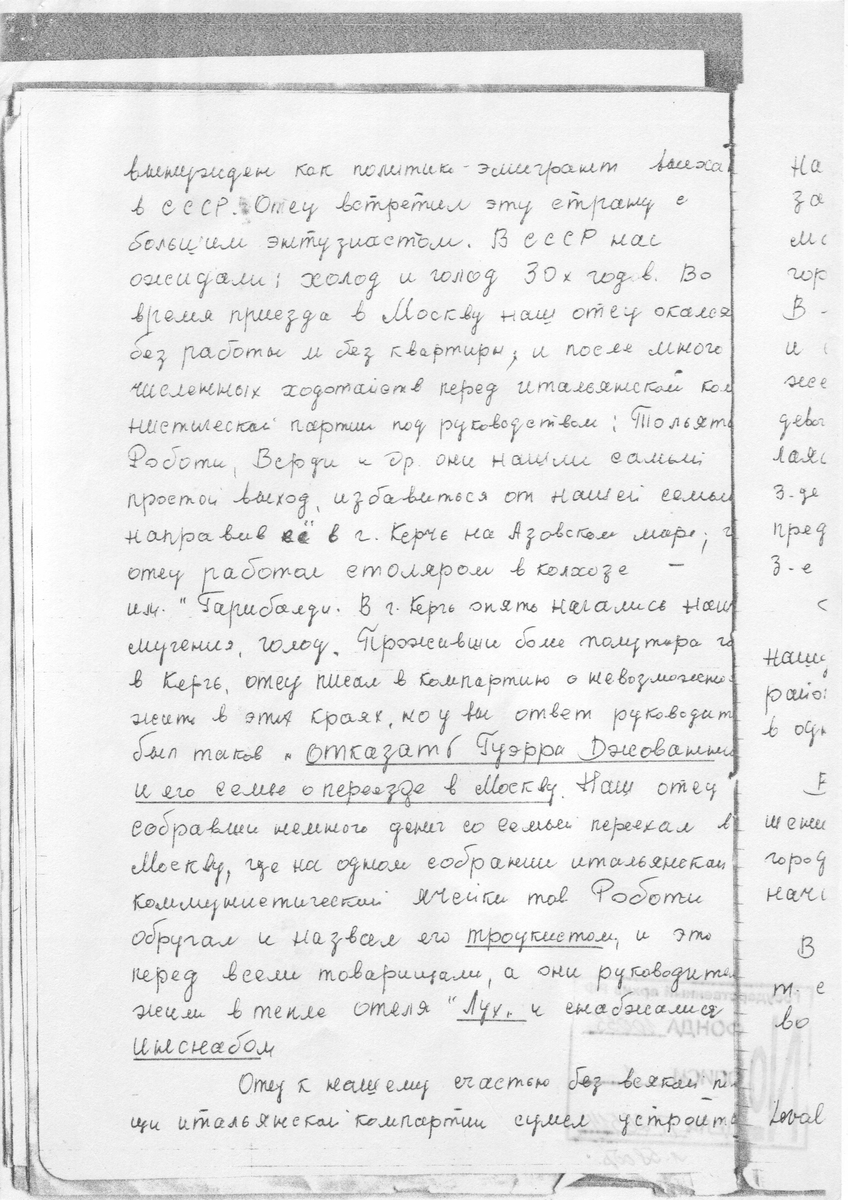 вынужден как политик-эмигрант выеха
в СССР. Отец встретил эту страну с
большим энтузиастом. В СССР нас
ожидали: холод и голод 30х годов. Во
время приезда в Москву наш отец окался
без работы и без квартиры, и после много
численных ходотайств перед итальянской ком
нистической партии под руководством: Тольят
Роботи, Верди и др. они нашли самый
простой выход, избавиться от нашей семьи
направив её в г. Керчь на Азовском море; г
отец работал столяром в колхозе —
им. "Гарибальди. В г. Керчь опять начались наш
мучения, голод. Проживши боле полутора го
в Керчь, отец писал в компартию о невозможно
жить в этих краях, но увы ответ руководит
был таков „ отказать Гуэрра Джованни
и его семье о переезде в Москву. Наш отец
собравши немного денег со семьей переехал в
Москву, где на одном собрании итальянской
коммунистической ячейки тов Роботи
обругал и назвал его троцкистом, и это
перед всеми товарищами, а они руководите
жили в тепле отеля "Лух„ и снабжались
Инснабом
Отец к нашему счастью без всякой по
щи итальянской компартии сумел устройт
На
за
мо
гор
В -
и
же
дево
лаяс
3-де
пред
3-е
с
наши
райо
в одн
шени
город
начи
В
т. е
во
Loval
Государственный архив РФ
ФОНДА
ОПИСИ
№